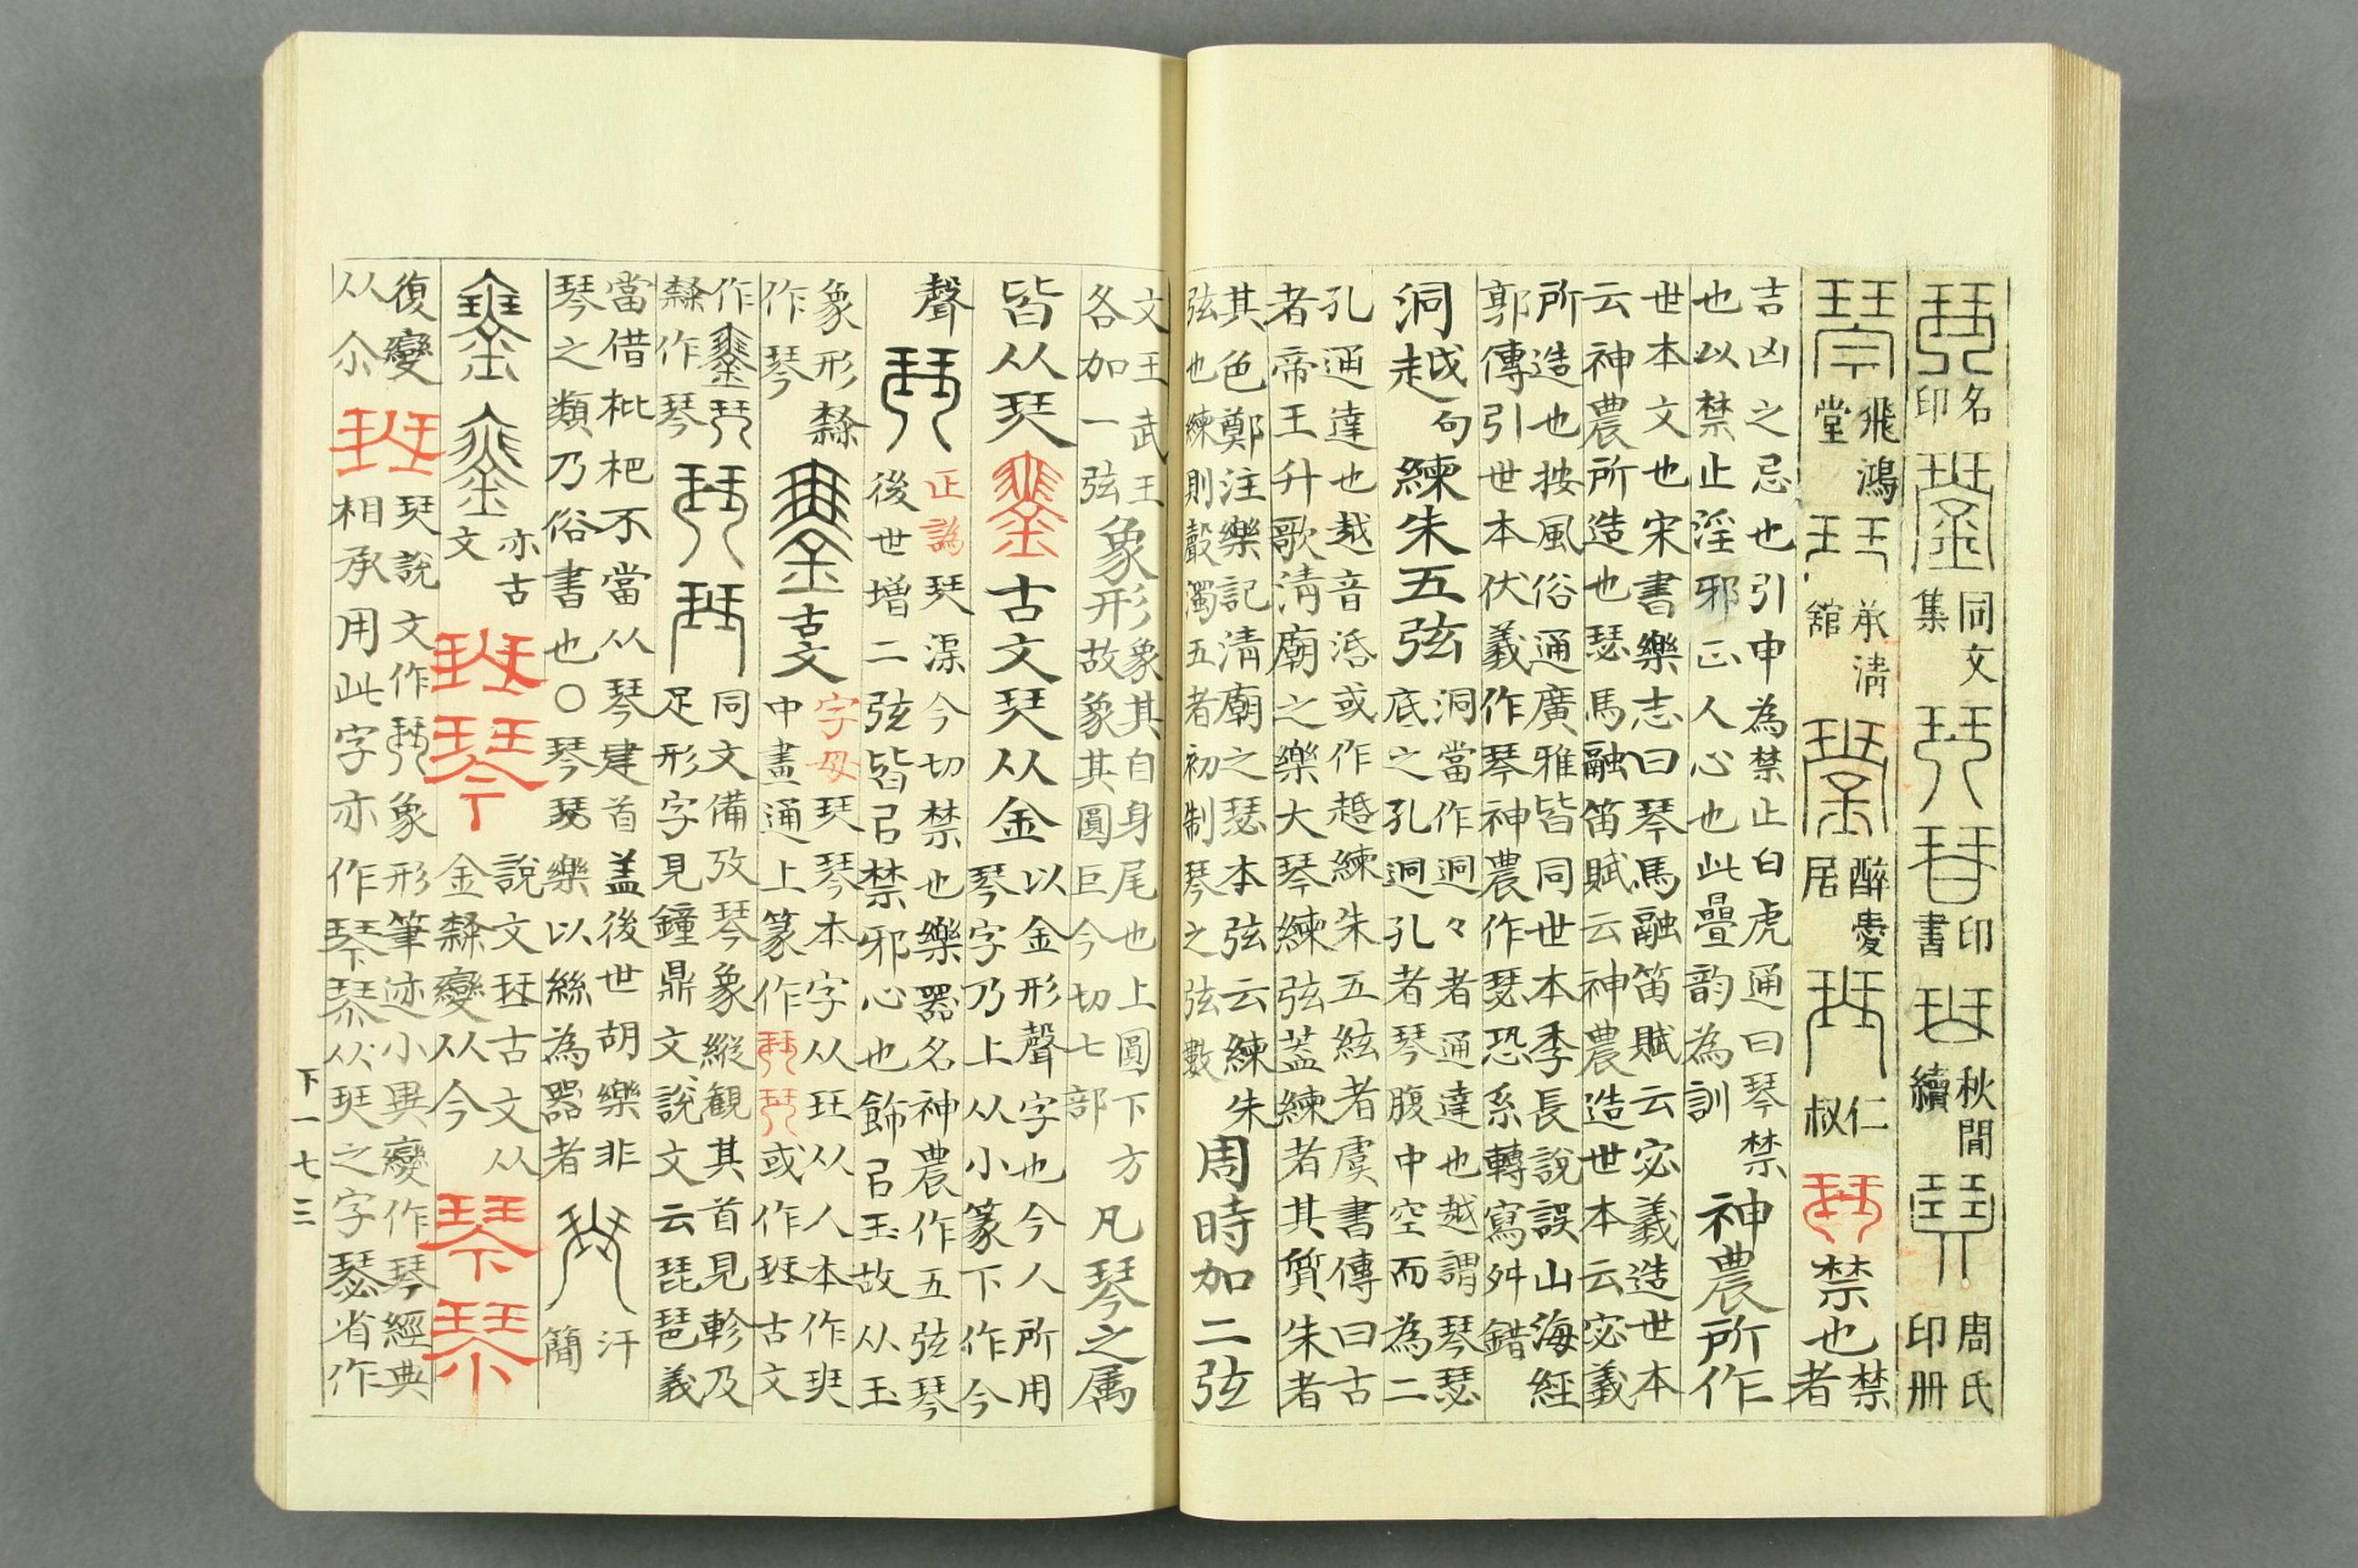 琴 名
印 琴 同文
集 琴 琴 印
書 琴 秋間
續 琴 周氏
印册
琴 飛鴻
堂 琴 承清
舘 琴 醉愛
居 琴 仁
叔 琴 禁也 禁
者
吉凶之忌也引申為禁止白虎通曰琴禁
也以禁止淫邪正人心也此疊韵為訓 神農所作
世本文也宋書樂志曰琴馬融笛賦云宓義造世本
云神農所造也瑟馬融笛賦云神農造世本云宓義
所造也按風俗通廣雅皆同世本季長說誤山海經
郭傳引世本伏義作琴神農作瑟恐系轉寫舛錯
洞越句練朱五弦 洞當作迵々者通達也越謂琴瑟
底之孔迵孔者琴腹中空而為二
孔通達也越音活或作趏練朱五絃者虞書傳曰古
者帝王升歌清廟之樂大琴練弦蓋練者其質朱者
其色鄭注樂記清廟之瑟本弦云練朱
弦也練則聲濁五者初制琴之弦數 周時加二弦
文王武王
各加一弦 象形 象其自身尾也上圓下方
故象其圓巨今切七部 凡琴之属
皆从珡 古文珡从金 以金形聲字也今人所用
琴字乃上从小篆下作今
聲 珡 正譌 珡渠今切禁也樂器名神農作五弦琴
後世增二弦皆㠯禁邪心也飾㠯玉故从玉
象形隸
作琴 古文 字母 珡琴本字从玨从人本作珡
中畫通上篆作珡珡或作珡古文
作 珡
隸作琴 珡 珡 同文備攷琴象縱観其首見軫及
足形字見鐘鼎文說文云琵琶義
當借枇杷不當从琴建首盖後世胡樂非
琴之類乃俗書也〇琴瑟樂以絲為器者 珡 汗
簡
亦古
文 琴 說文珡古文从
金隸變从今 琴 琹
復變
从尒 珡說文作珡象形筆迹小異變作琴經典
相承用此字亦作琴琹从珡之字瑟省作
下一七三